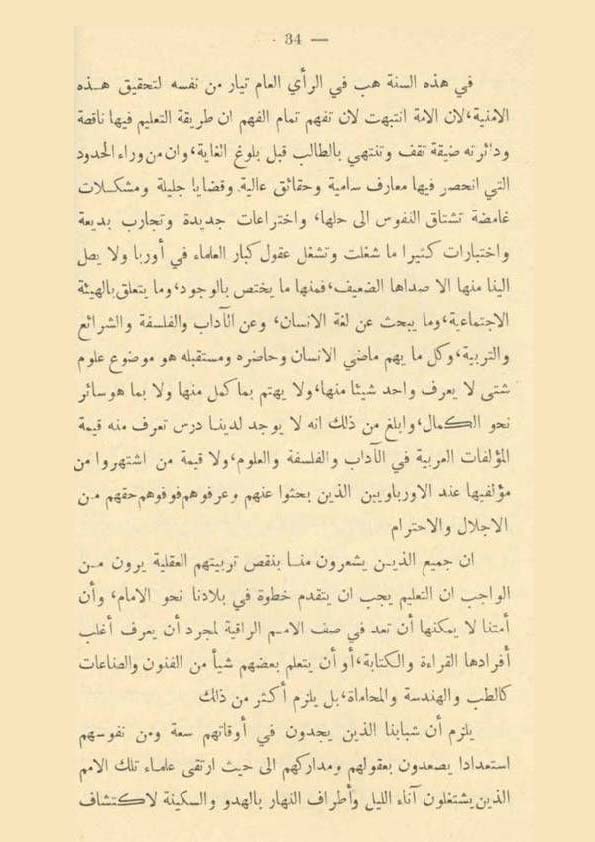 — 34 —
في هذه السنة هب في الرأي العام تيار من نفسه لتحقيق هـذه
الامنية، لان الامة انتبهت لان تفهم تمام الفهم ان طريقة التعليم فيها ناقصة
ودائرته ضيقة تقف وتنتهي بالطالب قبل بلوغ الغاية، وان من وراء الحدود
التي انحصر فيها معارف سامية وحقائق عالية. وقضايا جليلة ومشكـلات
غامضة تشتاق النفوس الى حلها، واختراعات جديدة وتجارب بديعة
واختبارات كثيرا ما شغلت وتشغل عقول كبار العلماء في أوربا ولا يصل
الينا منها الا صداها الضعيف، فمنها ما يختص بالوجود، وما يتعلق بالهيئة
الاجتماعية، وما يبحث عن لغة الانسان، وعن الآداب والفلسفة والشرائع
والتربية، وكل ما يهم ماضي الانسان وحاضره ومستقبله هو موضوع علوم
شتى لا يعرف واحد شيئا منها، ولا يهتم بما كمل منها ولا بما هو سائر
نحو الكمال، وابلغ من ذلك انه لا يوجد لدينـا درس تعرف منه قيمة
المؤلفات العربية في الآداب والفلسفة والعلوم، ولا قيمة من اشتهروا من
مؤلفيها عند الاورباويين الذين بحثوا عنهم وعرفوهم فوفوهم حقهم مـن
الاجلال والاحترام
ان جميع الذيـن يشعرون منـا بنقص تربيتهم العقلية يرون مـن
الواجب ان التعليم يجب ان يتقدم خطوة في بلادنا نحو الامام، وأن
أمتنا لا يمكنها أن تعد في صف الامـم الراقية لمجرد أن يعرف أغلب
أفرادها القراءة والكتابة، أو أن يتعلم بعضهم شيأ من الفنون والصناعات
كالطب والهندسة والمحاماة، بل يلزم أكثر من ذلك
يلزم أن شبابنا الذين يجدون في أوقاتهم سعة ومن نفوسـهم
استعدادا يصعدون بعقولهم ومداركهم الى حيث ارتقى علمـاء تلك الامم
الذين يشتغلون آناء الليل وأطراف النهار بالهدو والسكينة لاكتشاف